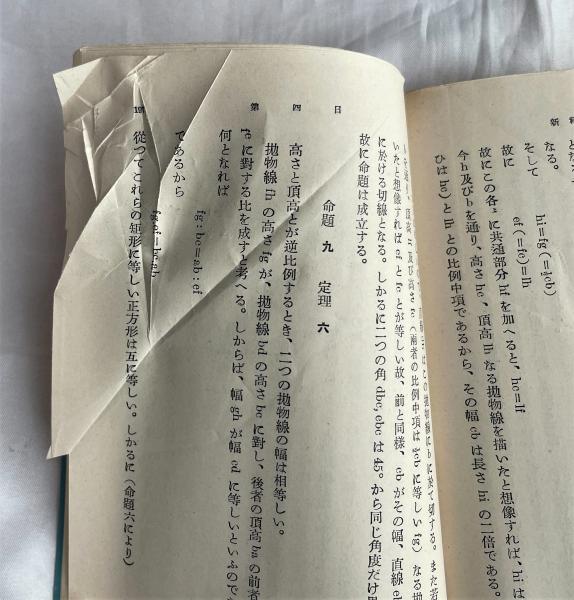 新
となる
なる。
そして
hi=fg(=½cb)
ef(=fe)=lh
故に
故にこの各〻に共通部分 hf を加へると、he=lf
今h及びbを通り、高さ he、頂高 lh なる拋物線を描いたと想像すれば、hi は
ひは he)と lh との比例中項であるから、その幅 cb は長さ hi の二倍である。
第四日
に於て切する。また若
及び高さ (兩者の比例中項は ½cb に等しい fg)なる拋
いたと想像すれば ef と fe とが等しい故、前と同樣、cb がその幅、直線 eb
に於ける切線となる。しかるに二つの角 dbc, ebc は 45° から同じ角度だけ異
故に命題は成立する。
命題 九 定理 六
高さと頂高とが逆比例するとき、二つの拋物線の幅は相等しい。
拋物線 fh の高さ fg が、拋物線 bd の高さ be に對し、後者の頂高 ba の前者
fe に對する比を成すと考へる。しからば、幅 gh が幅 ed に等しいといふので
何となれば
fg:be=ab:ef
であるから
從つてこれらの矩形に等しい正方形は互に等しい。しかるに(命題六により)